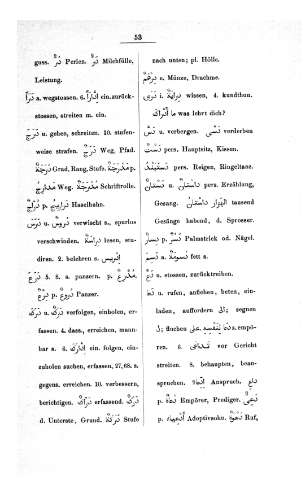 53
guss. دُرّ Perlen. دَرّ Milchfülle,
Leistung.
دَرَأَ a. wegstossen. 6. اِدَّارَأَ ein. zurück-
stossen, streiten m. ein.
دَرَجَ u. gehen, schreiten. 10. stufen-
weise strafen. دَرْج Weg, Pfad.
دَرَجَة Grad, Rang, Stufe. دَرَجَة p.
مَدْرَجَة Weg. مَدَارِج Schriftrolle.
دُرَّاج p. دَرَارِيج Haselhuhn.
دَرَسَ u. دُرُوس verwischt s., spurlos
verschwinden. دِرَاسَة lesen, stu-
diren. 2. belehren s. اِدْرِيس
دَرَعَ 5. 8. a. panzern. p. مُدَّرِع
دِرْع p. دُرُوع Panzer.
دَرَكَ u. دَرَك verfolgen, einholen, er-
fassen. 4. dass., erreichen, mann-
bar a. 6. اِدَّارَكَ ein. folgen, ein-
zuholen suchen, erfassen, 27,68. s.
gegens. erreichen. 10. verbessern,
berichtigen. دَرَاكِ erfassend. دَرَك
d. Unterste, Grund. دَرَكَة Stufe
nach unten; pl. Hölle.
دِرْهَم s. Münze, Drachme.
دَرَى i. دِرَايَة wissen, 4. kundthun.
مَا أَدْرَاكَ was lehrt dich?
دَسَّ u. verbergen. دَسَّى verderben
دَسْت pers. Hauptsitz, Kissen.
دَسْتَبَنْد pers. Reigen, Ringeltanz.
دَسْتَان u. دَاسْتَان pers. Erzählung,
Gesang. هَزَار دَاسْتَان tausend
Gesänge habend, d. Sprosser.
دِسَار p. دُسُر Palmstrick od. Nagel.
دَسَم a. دُسُومَة fett s.
دَعَّ u. stossen, zurücktreiben.
دَعَا u. rufen, anflehen, beten, ein-
laden, auffordern إلى; segnen
لِ; fluchen عَلَى. دَعَا لِنَفْسِهِ s. empö-
ren. 6. تَدَاعَى vor Gericht
streiten. 8. behaupten, bean-
spruchen. اِدِّعَاء Anspruch. دَاعٍ
p. دُعَاة Empörer, Prediger. دَعِيّ
p. أَدْعِيَاء Adoptivsohn. دَعْوَة Ruf,